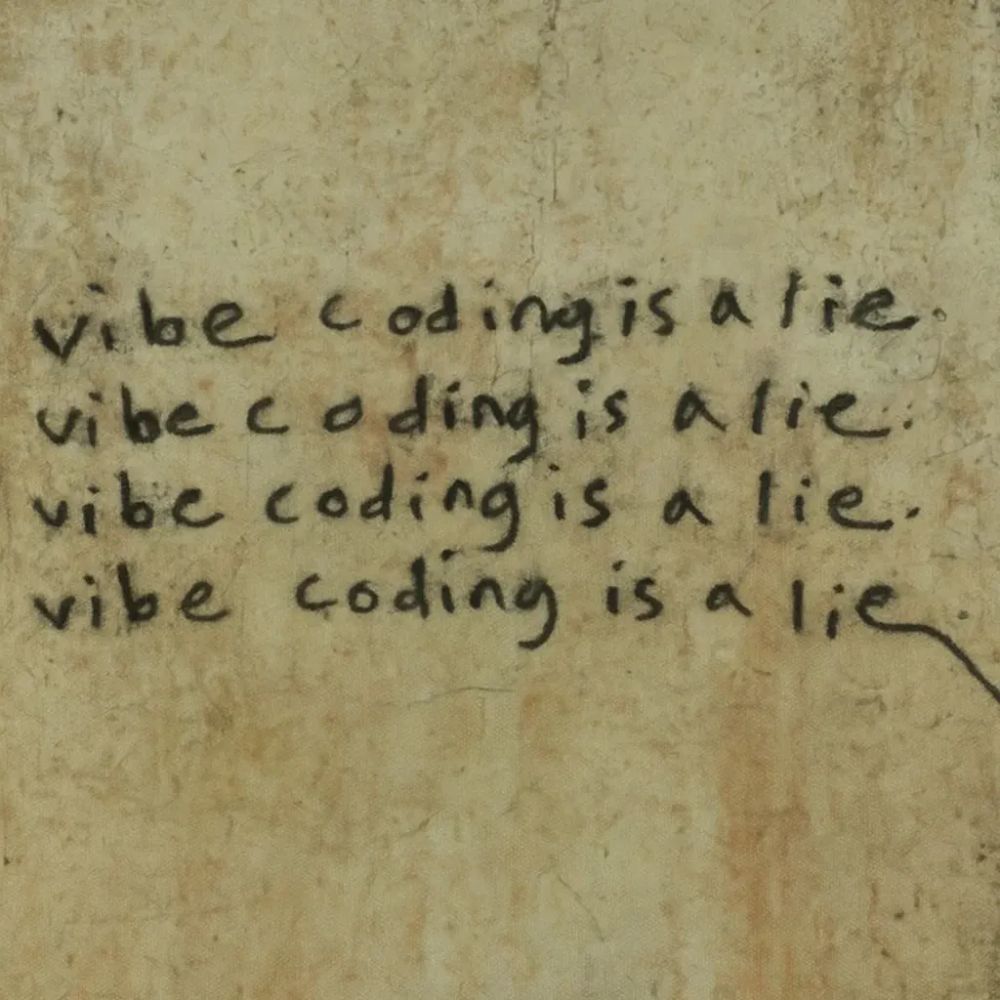 vibe coding is a lie.
vibe coding is a lie.
vibe coding is a lie.
vibe coding is a lie